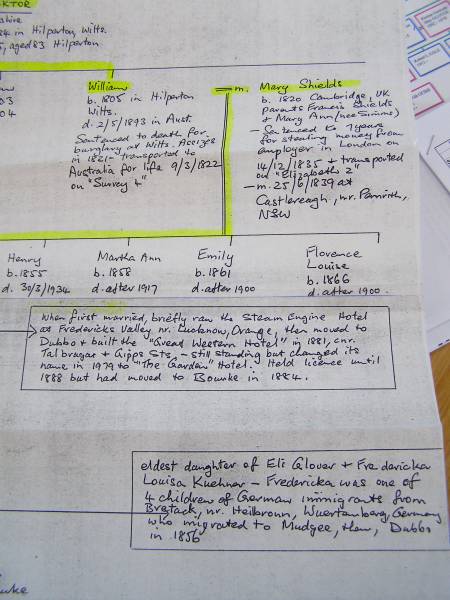 shire
in Hilperton, Wilts.
, aged 83 Hilperton
William
b. 1805 in Hilperton
Wilts.
d. 2/5/1893 in Aust.
Sentenced to death for
burglary at Wilts. Assizes
in 1821 - transported to
Australia for life 9/3/1822
on "Surrey 4"
= m. Mary Shields
b. 1820 Cambridge, UK
parents Francis Shields
& Mary Ann (nee Simms)
- Sentenced to 7 years
for stealing money from
employer in London on
14/12/1835 + transported
on "Elizabeth 2"
- m. 25/6/1839 at
Castlereagh, nr. Penrith,
NSW
Henry
b. 1855
d. 30/3/1934
Martha Ann
b. 1858
d. after 1917
Emily
b. 1861
d. after 1900
Florence
Louise
b. 1866
d. after 1900
When first married, briefly ran the Steam Engine Hotel
at Fredericks Valley nr. Lucknow, Orange, then moved to
Dubbo & built the "Great Western Hotel" in 1881, cnr.
Talbragar & Gipps Sts, - still standing but changed its
name in 1979 to "The Garden" Hotel. Held licence until
1888 but had moved to Bourke in 1884.
eldest daughter of Eli Glover + Fredericka
Louisa Kuehner - Fredericka was one of
4 children of German immigrants from
Bretack, nr. Heilbronn, Wuertemberg, Germany
who migrated to Mudgee, then, Dubbo
in 1856